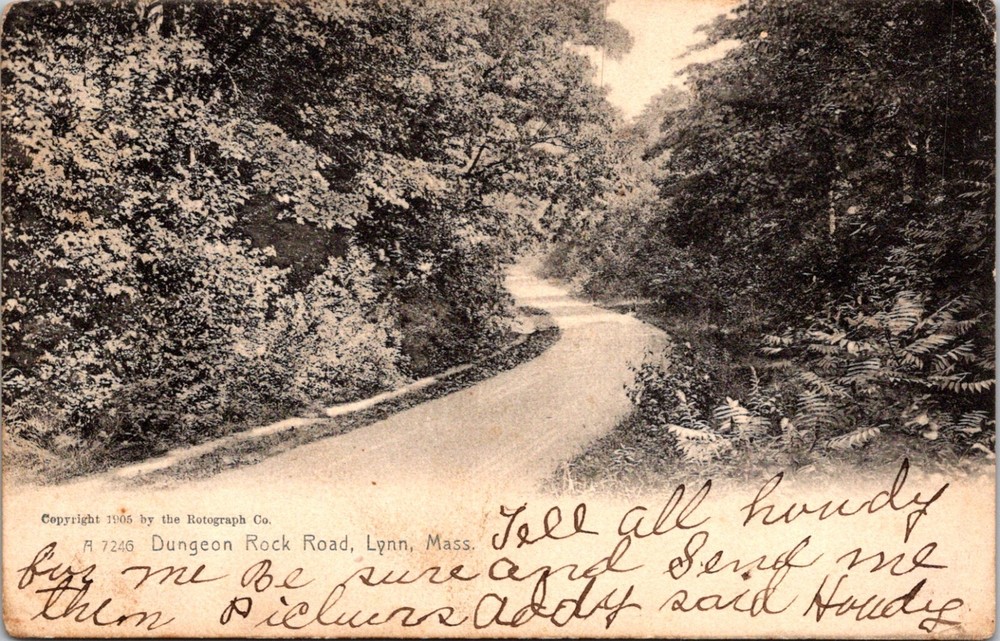 Copyright 1905 by the Rotograph Co.
A 7246 Dungeon Rock Road, Lynn, Mass.
Tell all howdy
for me Be sure and Send me
them Pichurs Addy said Howdy